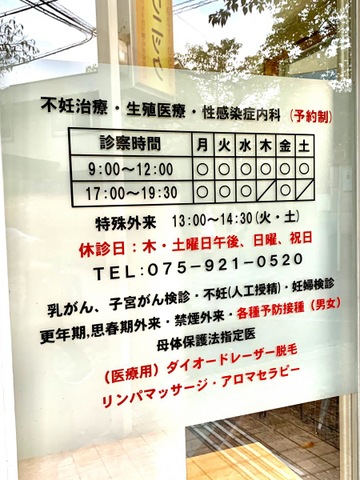 不妊治療・生殖医療・性感染症内科（予約制）
診察時間 月 火 水 木 金 土
9:00～12:00 ○ ○ ○ ○ ○ ○
17:00～19:30 ○ ○ ○ ／ ○ ／
特殊外来 13:00～14:30(火・土)
休診日：木・土曜日午後、日曜、祝日
TEL:075-921-0520
乳がん、子宮がん検診・不妊(人工授精)・妊婦検診
更年期,思春期外来・禁煙外来・各種予防接種（男女）
母体保護法指定医
（医療用）ダイオードレーザー脱毛
リンパマッサージ・アロマセラピー